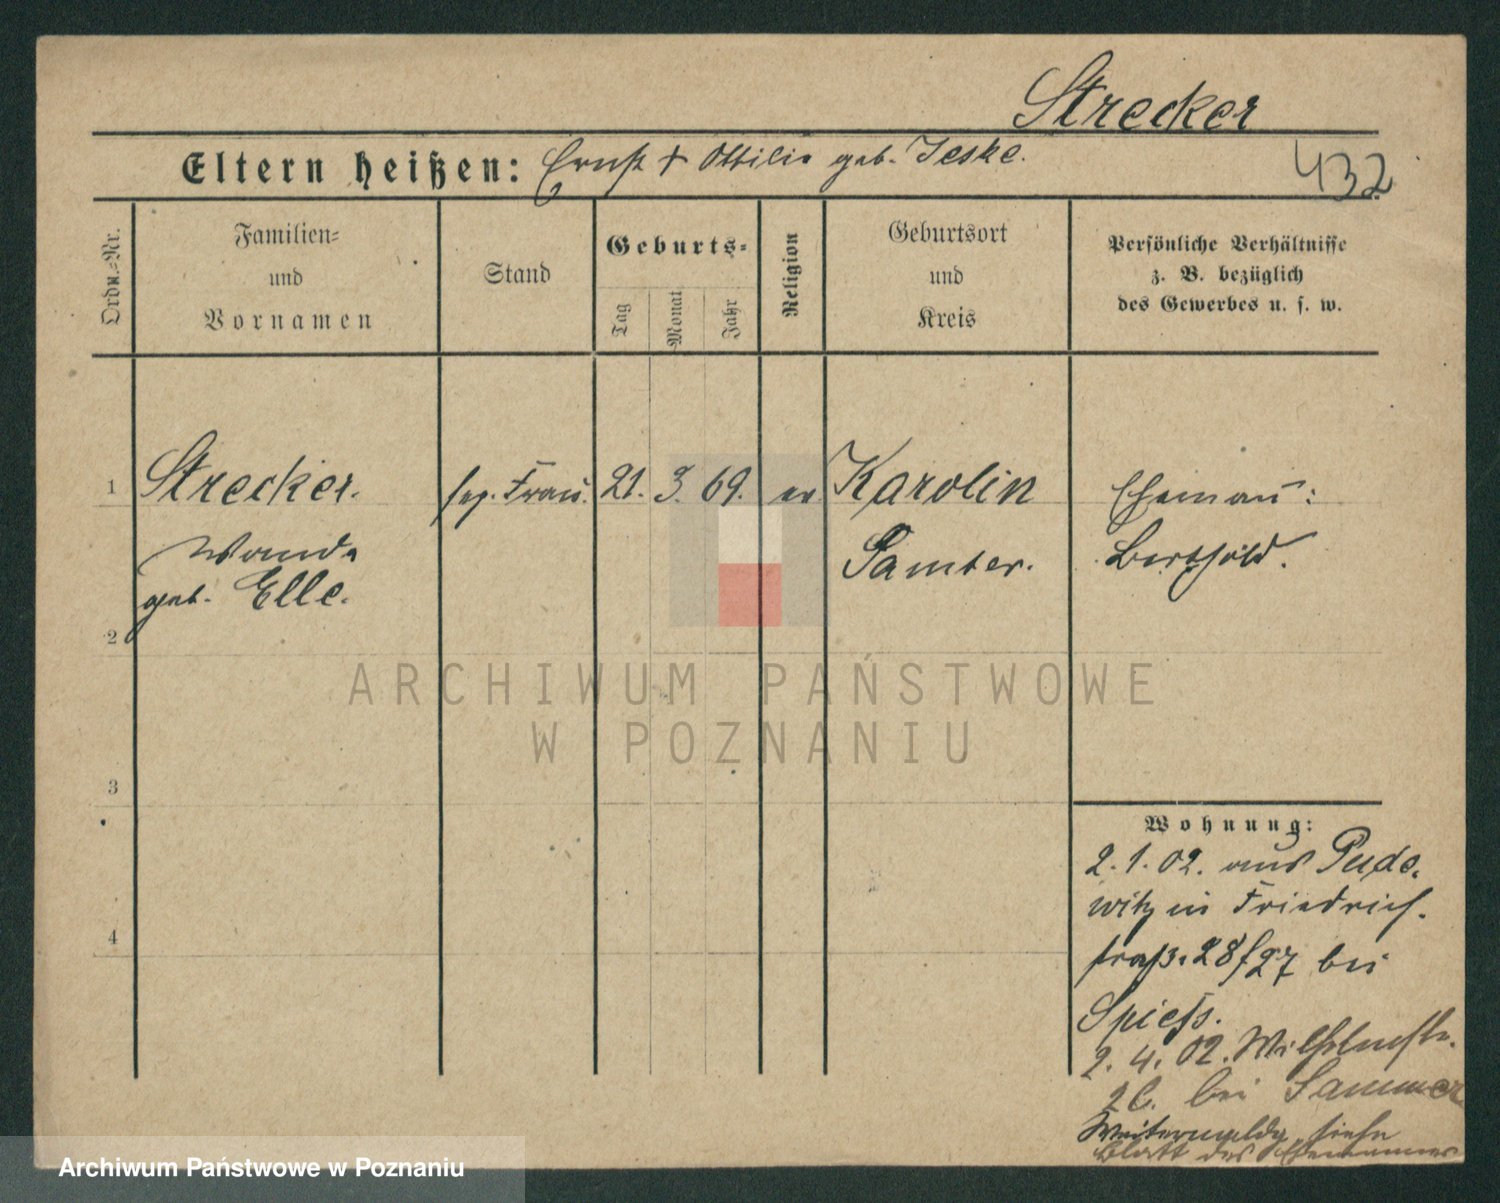 Strecker
Eltern heißen: Ernst + Ottilie geb. Jeske.
432
Ordn.-Nr.
Familien-
und
Vornamen
Stand
Geburts-
Tag
Monat
Jahr
Religion
Geburtsort
und
Kreis
Persönliche Verhältnisse
z. B. bezüglich
des Gewerbes u. s. w.
1 Strecker. sep. Frau. 21. 3. 69. ev. Karolin Ehemann:
Wanda Samter. Berthold.
geb. Elle.
2
ARCHIWUM PAŃSTWOWE
W POZNANIU
3
Wohnung:
2.1.02. aus Pude-
witz in Friedrich-
straß. 28/27 bei
4
Spiess.
2.4.02. Wilhelmstr.
bei Sammer
Weitermeldg. siehe
Blatt des Ehemannes
Archiwum Państwowe w Poznaniu